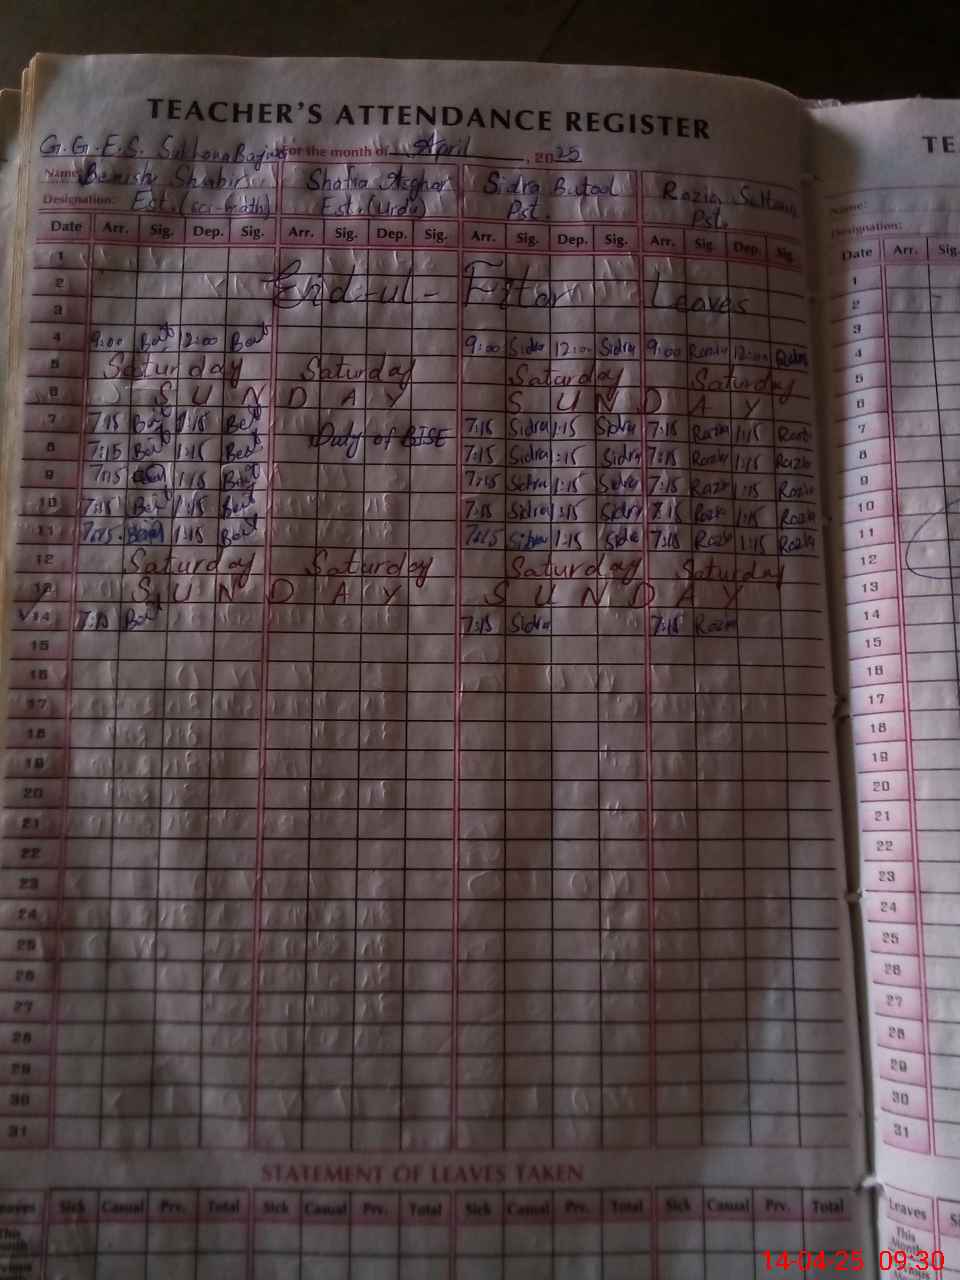 TEACHER'S ATTENDANCE REGISTER TE
G.G.E.S. for the month of April, 2025
Name: Benish Shabir Shafia Asghar Sidra Batool Razia Sultana Name:
Designation: Est.(sci-math) Est.(Urdu) Pst. Pst. Designation:
Date Arr. Sig. Dep. Sig. Arr. Sig. Dep. Sig. Arr. Sig. Dep. Sig. Arr. Sig. Dep. Sig. Date Arr. Sig.
1 1
2 Eid-ul-Fitar Leaves 2
3 3
4 9:00 12:00 9:00 Sidra 12:00 Sidra 9:00 Razia 12:00 4
5 Saturday Saturday Saturday Saturday 5
6 S U N D A Y S U N D A Y 6
7 7:15 1:15 Duty of BISE 7:15 Sidra 1:15 Sidra 7:15 Razia 1:15 Razia 7
8 7:15 1:15 7:15 Sidra 1:15 Sidra 7:15 Razia 1:15 Razia 8
9 7:15 1:15 7:15 Sidra 1:15 Sidra 7:15 Razia 1:15 Razia 9
10 7:15 1:15 7:15 Sidra 1:15 Sidra 7:15 Razia 1:15 Razia 10
11 7:15 1:15 7:15 Sidra 1:15 Sidra 7:15 Razia 1:15 Razia 11
12 Saturday Saturday Saturday Saturday 12
13 S U N D A Y S U N D A Y 13
14 7:15 7:15 Sidra 7:15 Razia 14
15 15
16 16
17 17
18 18
19 19
20 20
21 21
22 22
23 23
24 24
25 25
26 26
27 27
28 28
29 29
30 30
31 31
STATEMENT OF LEAVES TAKEN
Leaves Sick Casual Prv. Total Sick Casual Prv. Total Sick Casual Prv. Total Sick Casual Prv. Total Leaves
This Month This Month
14-04-25 09:30